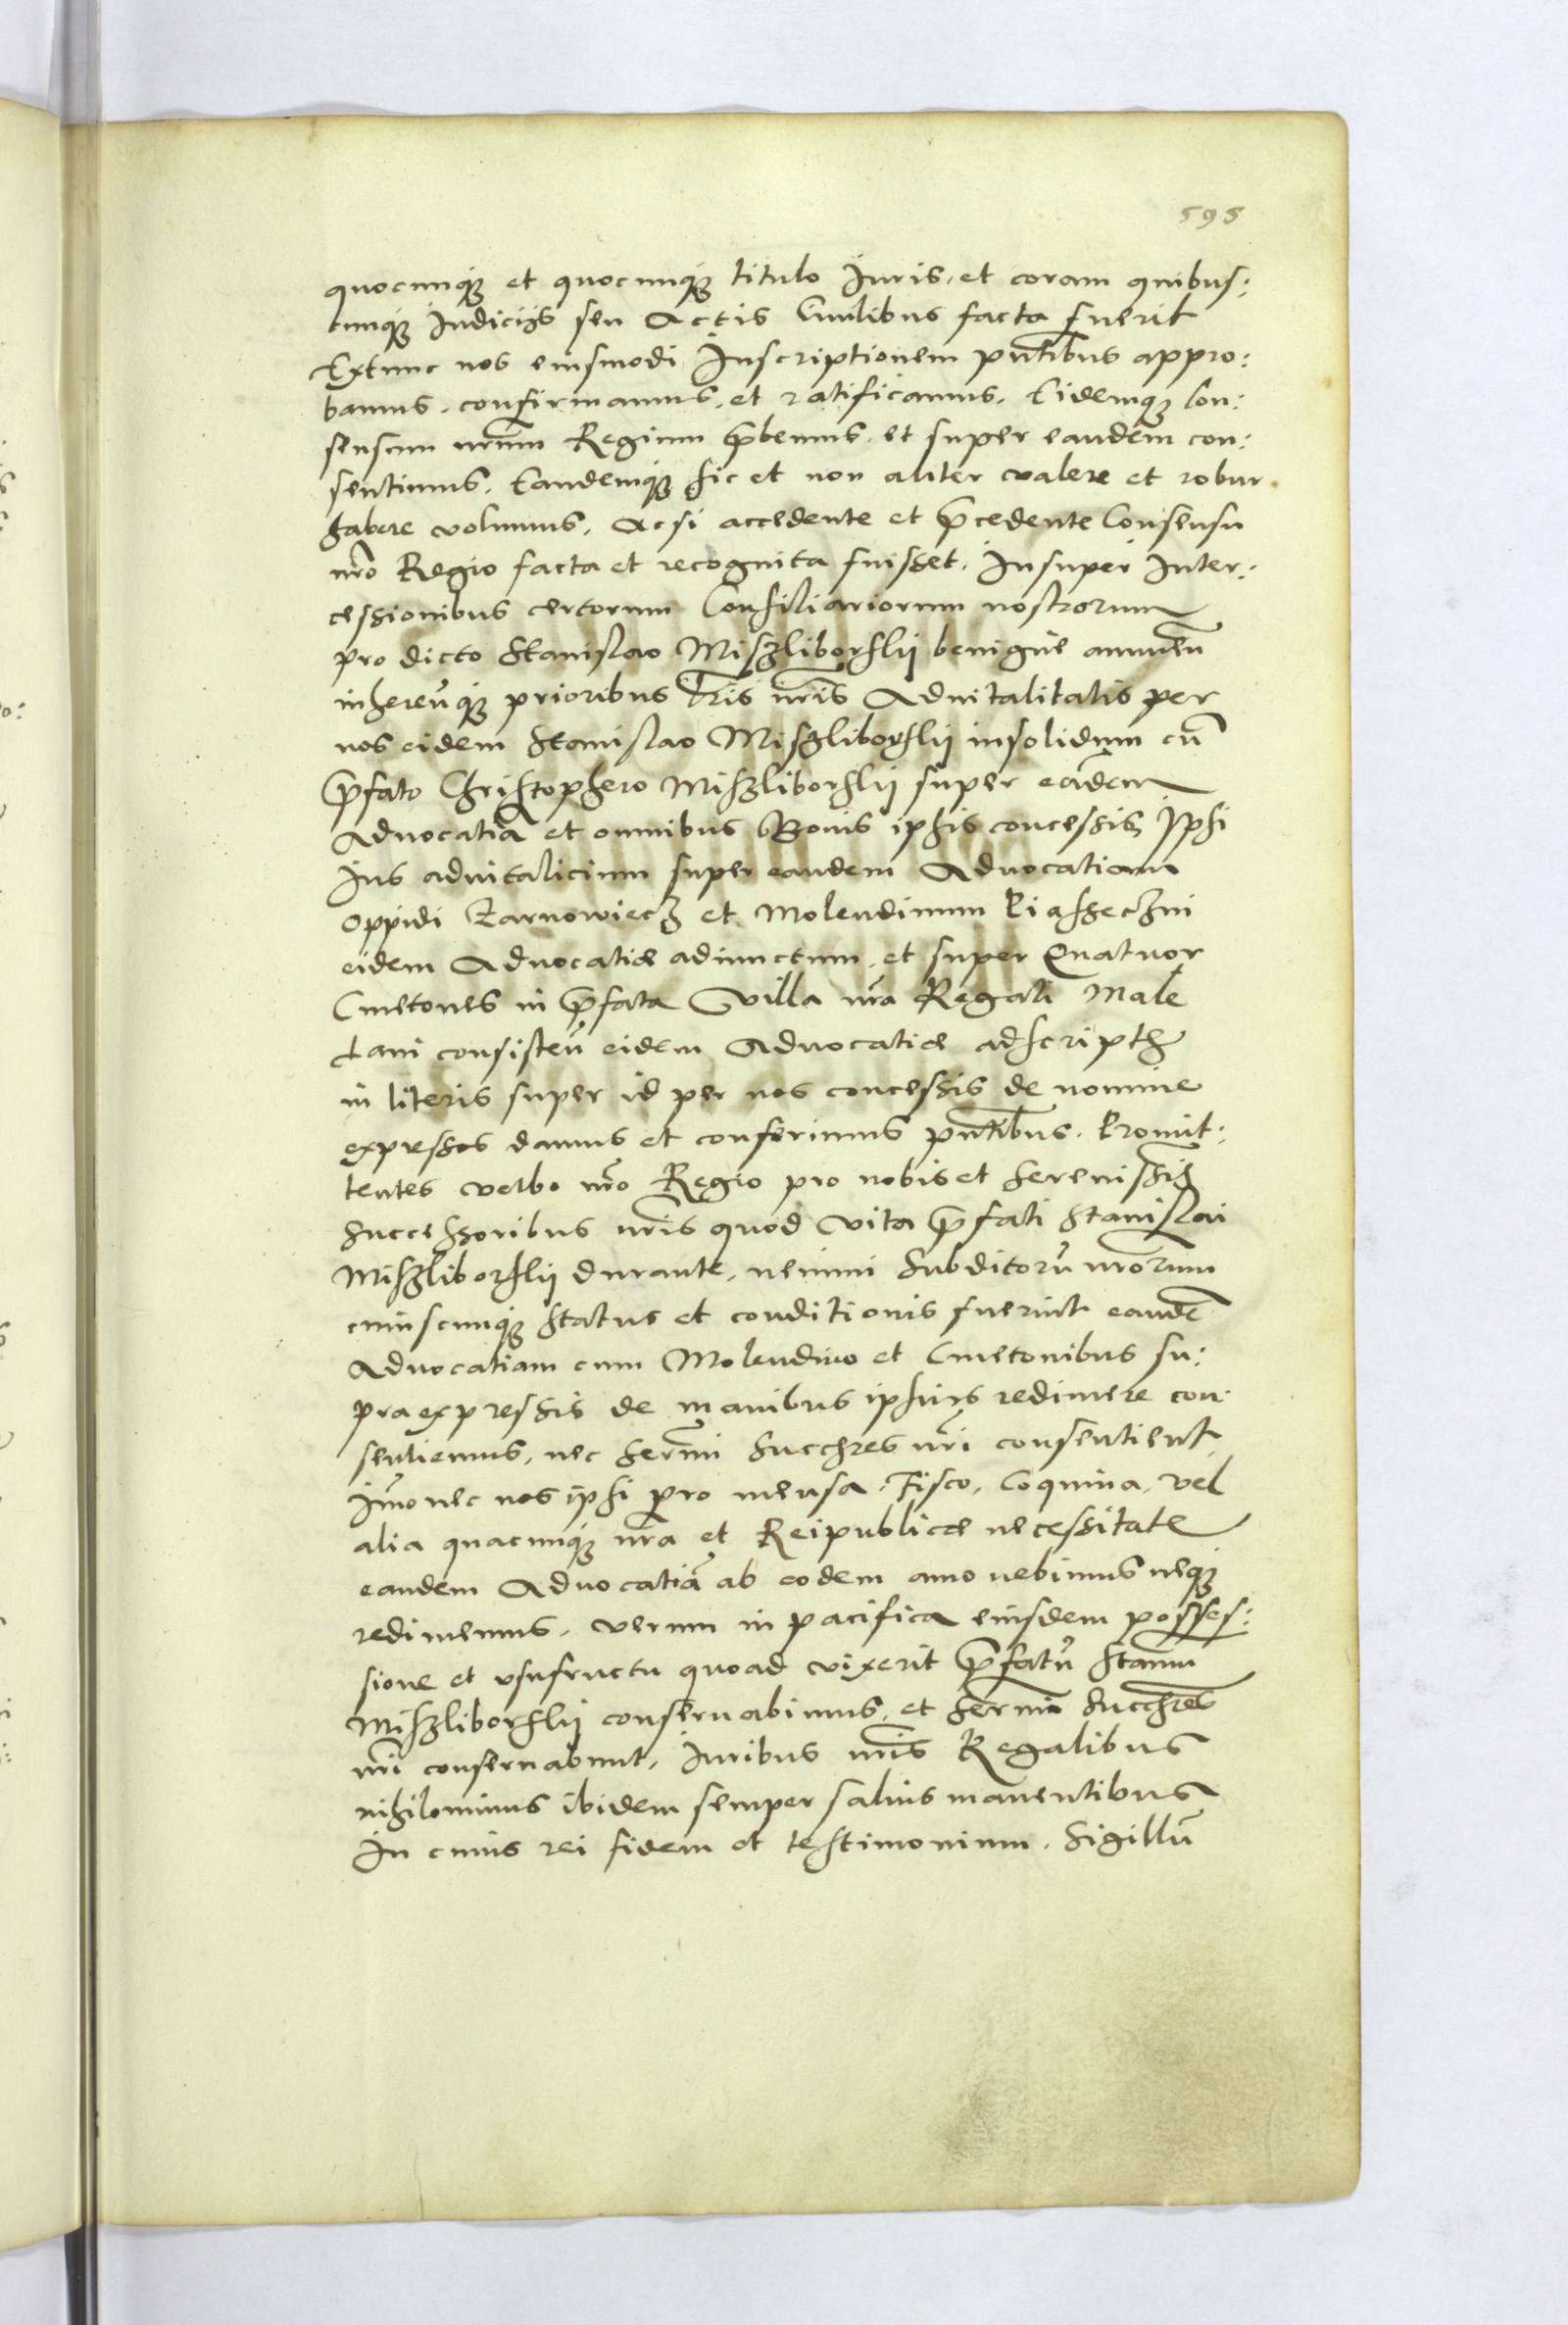 595
quocunq̃ et quocunq̃ titulo Iuris, et coram quibus:
cunq̃ Iudicijs seu Actis Ciuilibus facta fuerit
Extunc nos eiusmodi Inscriptionem pñtibus appro:
bamus, confirmamus, et ratificamus, Eidemq̃ Con:
sensum nrũm Regium p̃bemus, et super eandem con:
sentimus, Eandemq̃ sic et non aliter valere et robur
habere volumus, Ac si accedente et p̃cedente Consensu
nrõ Regio facta et recognita fuisset, Insuper Inter:
cessionibus certorum Consiliariorum nostrorum
pro dicto Stanislao Miszliborsky benigne annueñ
inhereñq̃ prioribus lr̃is nrĩs Aduitalitatis per
nos eidem Stanislao Miszliborsky insolidum cũ
p̃fato Christophero Miszliborsky super eãdem
Aduocatiã et omnibus Bonis ipsis concessis, Ipsi
Ius aduitalicium super eandem Aduocatiam
Oppidi Zarnowiecz et Molendinum Piasseczni
eidem Aduocatiæ adiunctum, et super Quatuor
Cmetones in p̃fata Villa nrã Regali Male
Lani consisteñ eidem Aduocatiæ adscriptos
in literis super id per nos concessis de nomine
expressos damus et conferimus pñtibus. Promit:
tentes verbo nrõ Regio pro nobis et Sereniss:
Successoribus nrĩs quod vita p̃fati Stanislai
Miszliborsky durante, nemini Subditorũ nrõrum
cuiuscunq̃ status et conditionis fuerint eandẽ
Aduocatiam cum Molendino et Cmetonibus su:
praexpressis de manibus ipsius redimere con:
sentiemus, nec Serm̃i Succẽres nrĩ consentient
Im̃o nec nos ipsi pro mensa, Fisco, Coquina, vel
alia quacunq̃ nrã et Reipublicæ necessitate
eandem Aduocatiã ab eodem amouebimus neq̃
redimemus, verum in pacifica eiusdem posses:
sione et vsufructu quoad vixerit p̃fatũ Stanũ
Miszliborsky conseruabimus, et Serm̃i Succẽres
nrĩ conseruabunt, Iuribus nrĩs Regalibus
nihilominus ibidem semper saluis manentibus
In cuius rei fidem et testimonium. Sigillũ